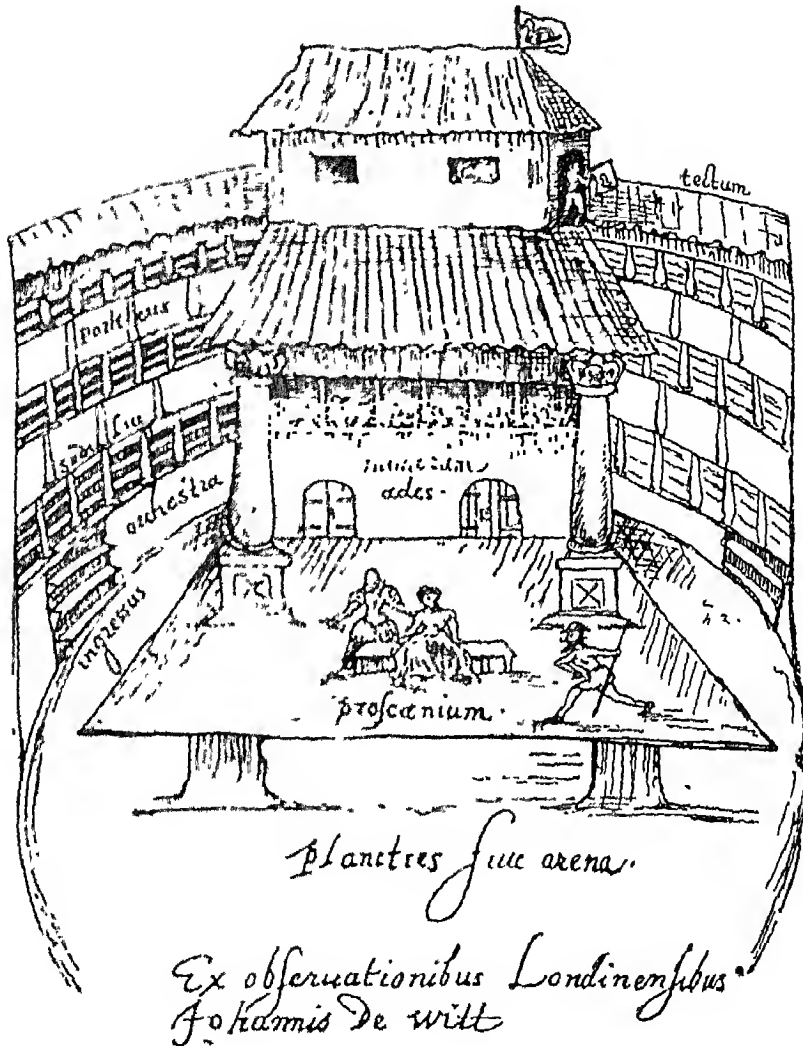 tectum
porticus
orchestra
ingressus
ædes.
proscænium.
planities siue arena.
Ex obseruationibus Londinensibus
Johannis De witt